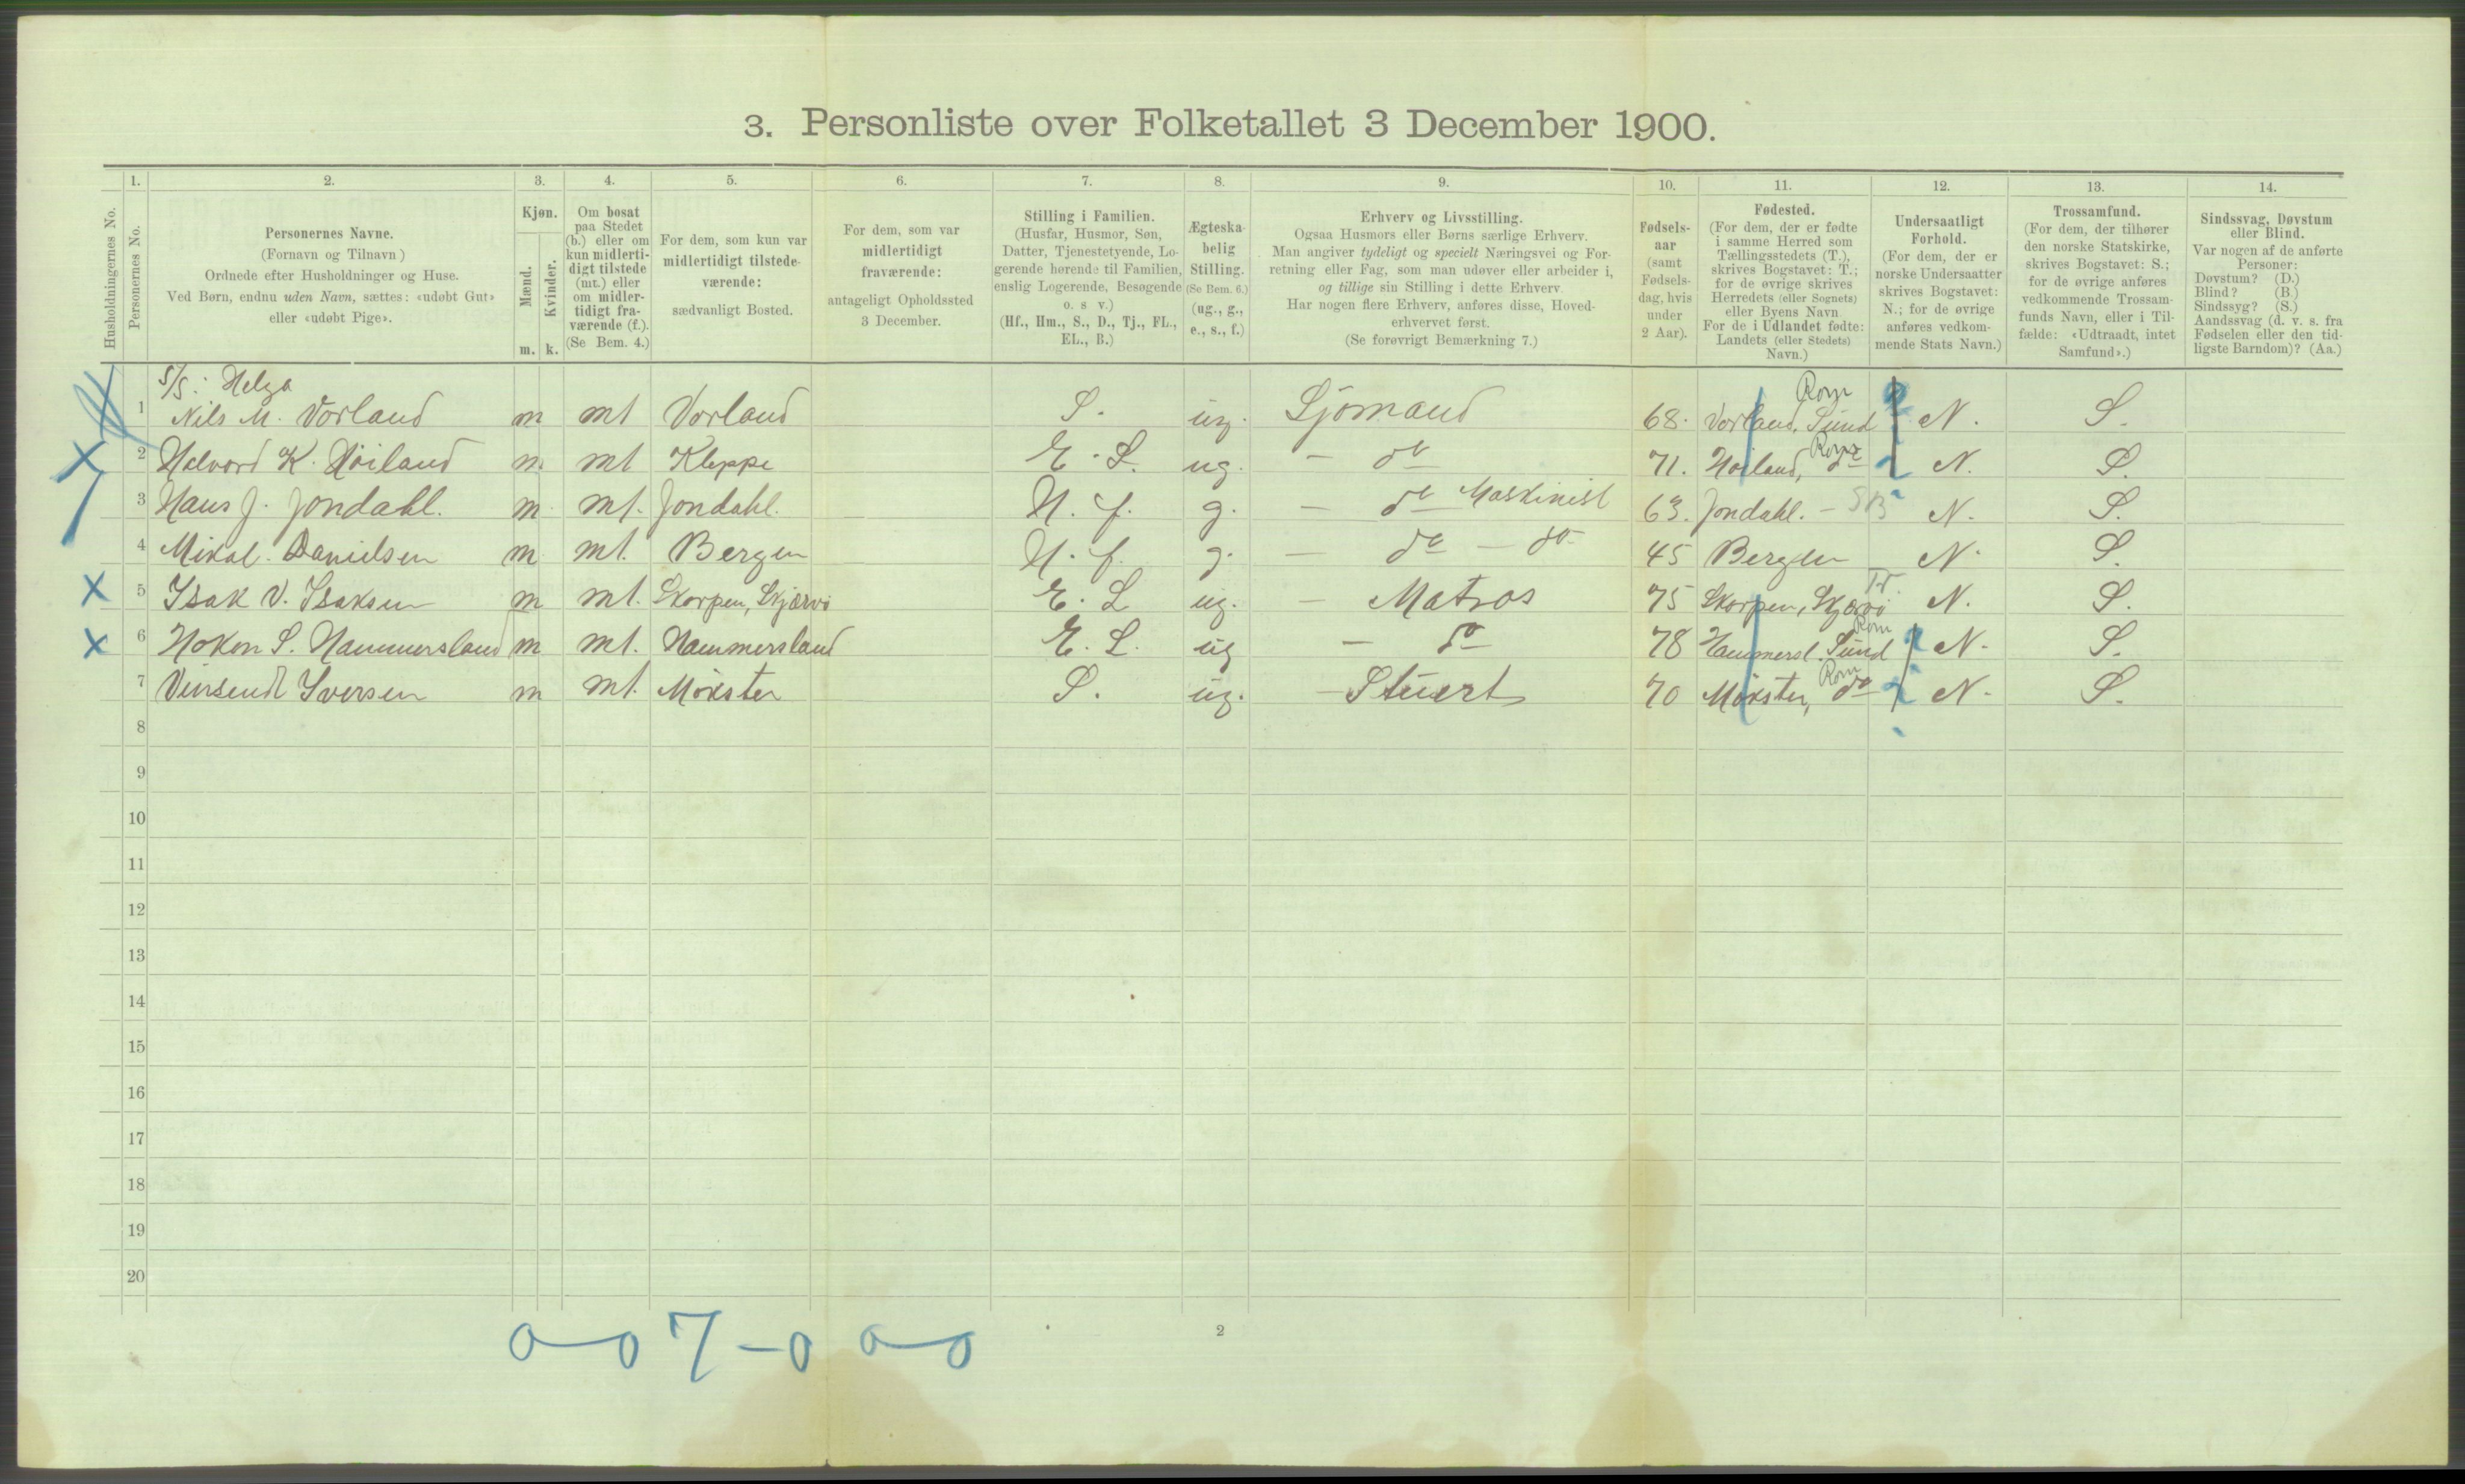 3. Personliste over Folketallet 3 December 1900.
Husholdningernes No.
1.
Personernes No.
2.
Personernes Navne.
(Fornavn og Tilnavn)
Ordnede efter Husholdninger og Huse.
Ved Børn, endnu uden Navn, sættes: «udøbt Gut»
eller «udøbt Pige».
3.
Kjøn.
Mænd.
Kvinder.
m. k.
4.
Om bosat
paa Stedet
(b.) eller om
kun midlerti-
digt tilstede
(mt.) eller
om midler-
tidigt fra-
værende (f.).
(Se Bem. 4.)
5.
For dem, som kun var
midlertidigt tilstede-
værende:
sædvanligt Bosted.
6.
For dem, som var
midlertidigt
fraværende:
antageligt Opholdssted
3 December.
7.
Stilling i Familien.
(Husfar, Husmor, Søn,
Datter, Tjenestetyende, Lo-
gerende hørende til Familien,
enslig Logerende, Besøgende
o. s. v.)
(Hf., Hm., S., D., Tj., FL.,
EL., B.)
8.
Ægteska-
belig
Stilling.
(Se Bem. 6.)
(ug., g.,
e., s., f.)
9.
Erhverv og Livsstilling.
Ogsaa Husmors eller Børns særlige Erhverv.
Man angiver tydeligt og specielt Næringsvei og For-
retning eller Fag, som man udøver eller arbeider i,
og tillige sin Stilling i dette Erhverv.
Har nogen flere Erhverv, anføres disse, Hoved-
erhvervet først.
(Se forøvrigt Bemærkning 7.)
10.
Fødsels-
aar
(samt
Fødsels-
dag, hvis
under
2 Aar).
11.
Fødested.
(For dem, der er fødte
i samme Herred som
Tællingsstedets (T.),
skrives Bogstavet: T.;
for de øvrige skrives
Herredets (eller Sognets)
eller Byens Navn.
For de i Udlandet fødte:
Landets (eller Stedets)
Navn.)
12.
Undersaatligt
Forhold.
(For dem, der er
norske Undersaatter
skrives Bogstavet:
N.; for de øvrige
anføres vedkom-
mende Stats Navn.)
13.
Trossamfund.
(For dem, der tilhører
den norske Statskirke,
skrives Bogstavet: S.;
for de øvrige anføres
vedkommende Trossam-
funds Navn, eller i Til-
fælde: «Udtraadt, intet
Samfund».)
14.
Sindssvag, Døvstum
eller Blind.
Var nogen af de anførte
Personer:
Døvstum? (D.)
Blind? (B.)
Sindssyg? (S.)
Aandssvag (d. v. s. fra
Fødselen eller den tid-
ligste Barndom)? (Aa.)
S/S: Helga
Rom
1 Nils M. Vorland m mt Vorland S. ug. Sjømand 68. Vorland, Sund N. S.
Rom
2 Halvard K. Høiland m. mt Kleppe E. L. ug. - do 71. Høiland, do N. S.
3 Hans J. Jondahl. m. mt. Jondahl. H. f. g. - do Maskinist 63. Jondahl. - SB N. S.
4 Mikal. Danielsen m mt. Bergen H. f. g. - do - do 45 Bergen N. S.
Tr.
5 Isak V. Isaksen m mt. Skorpen, Skjærvø E. L ug. - Matros 75 Skorpen, Skjærvø N. S.
Rom
6 Hokon S. Hammersland m mt. Hammersland E. L. ug - do 78 Hammersl. Sund N. S.
Rom
7 Vinsendt Iversen m mt. Møkster S. ug. - Stuert 70 Møkster, do N. S.
8
9
10
11
12
13
14
15
16
17
18
19
20
0-0 7-0 0-0
2